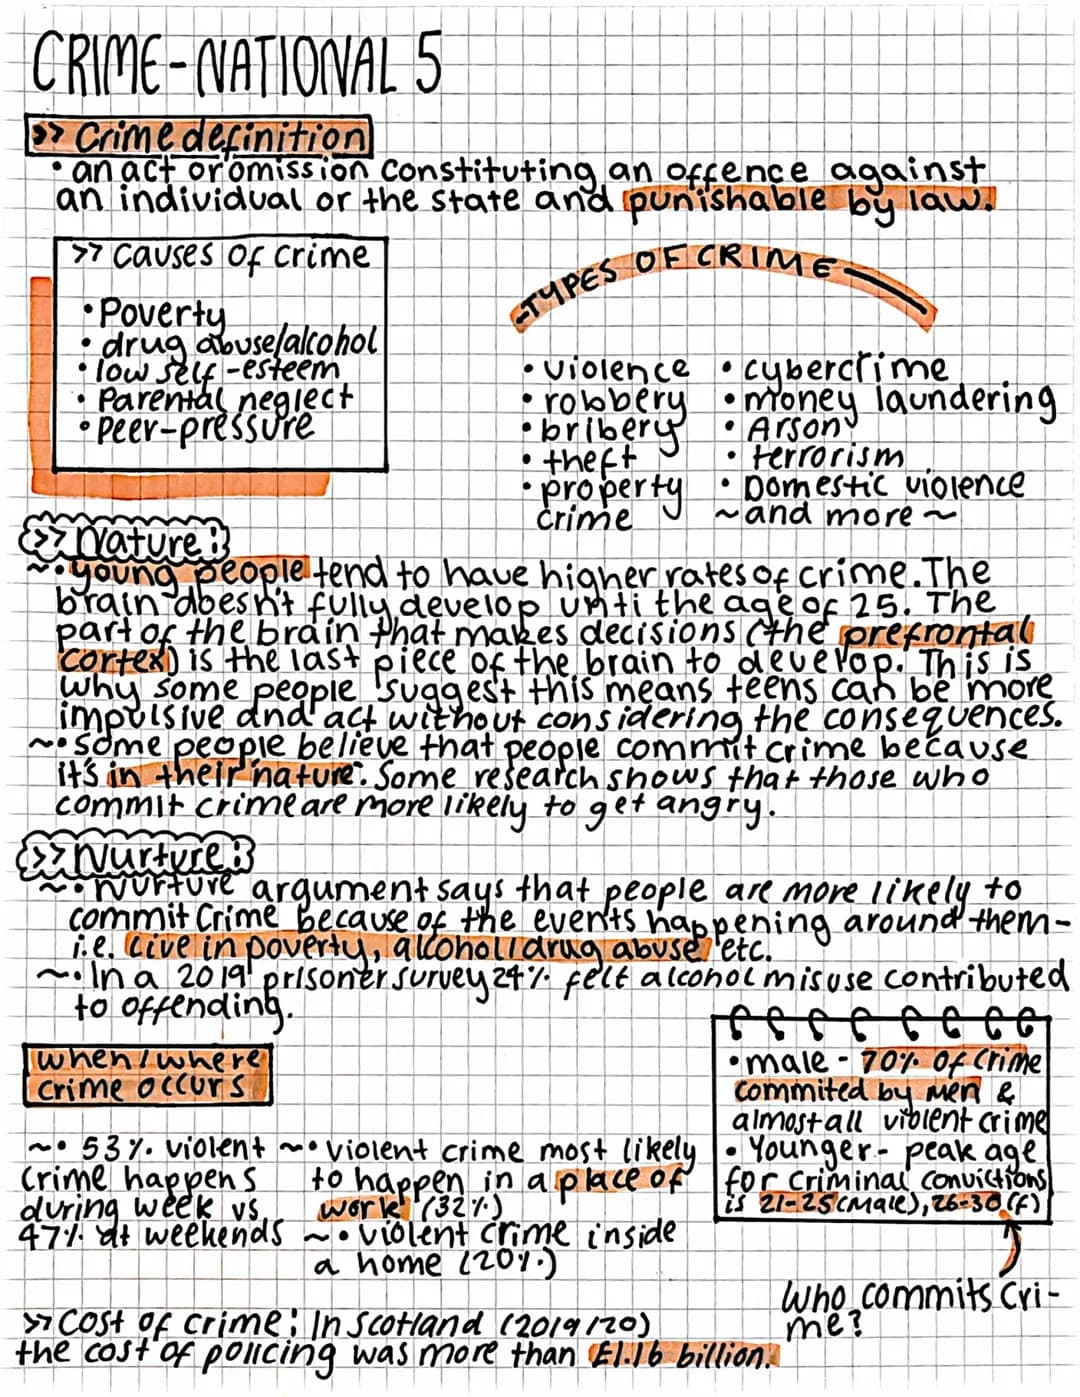 CRIME-NATIONAL 5
>> Crime definition
• an act or omission constituting an offence against
an individual or the state and punishable by law.
>> Causes of crime
• Poverty
• drug abuse/alcohol
• low self-esteem
• Parental neglect
• Peer-pressure
-TYPES OF CRIME-
• violence
• robbery
• bribery
• theft
• property
crime
• cybercrime
• money laundering
• Arson
• terrorism
• Domestic violence
~and more~
>> Nature:
~• young people tend to have higher rates of crime. The
brain doesn't fully develop unti the age of 25. The
part of the brain that makes decisions (the prefrontal
cortex) is the last piece of the brain to develop. This is
why some people suggest this means teens can be more
impulsive and act without considering the consequences.
~• some people believe that people commit crime because
it's in their nature. Some research shows that those who
commit crime are more likely to get angry.
>> Nurture:
~• Nurture argument says that people are more likely to
commit crime because of the events happening around them-
i.e. Live in poverty, alcohol/drug abuse etc.
~• In a 2019 prisoner survey 24% felt alcohol misuse contributed
to offending.
when/where
crime occurs
~• 53% violent
crime happens
during week vs
47% at weekends
~• violent crime most likely
to happen in a place of
work (32%)
~• violent crime inside
a home (20%)
• male - 70% of crime
commited by men &
almost all violent crime
• Younger - peak age
for criminal convictions
is 21-25 (male), 26-30 (f)
Who commits cri-
me?
>> Cost of crime: In Scotland (2019/20)
the cost of policing was more than £1.16 billion.